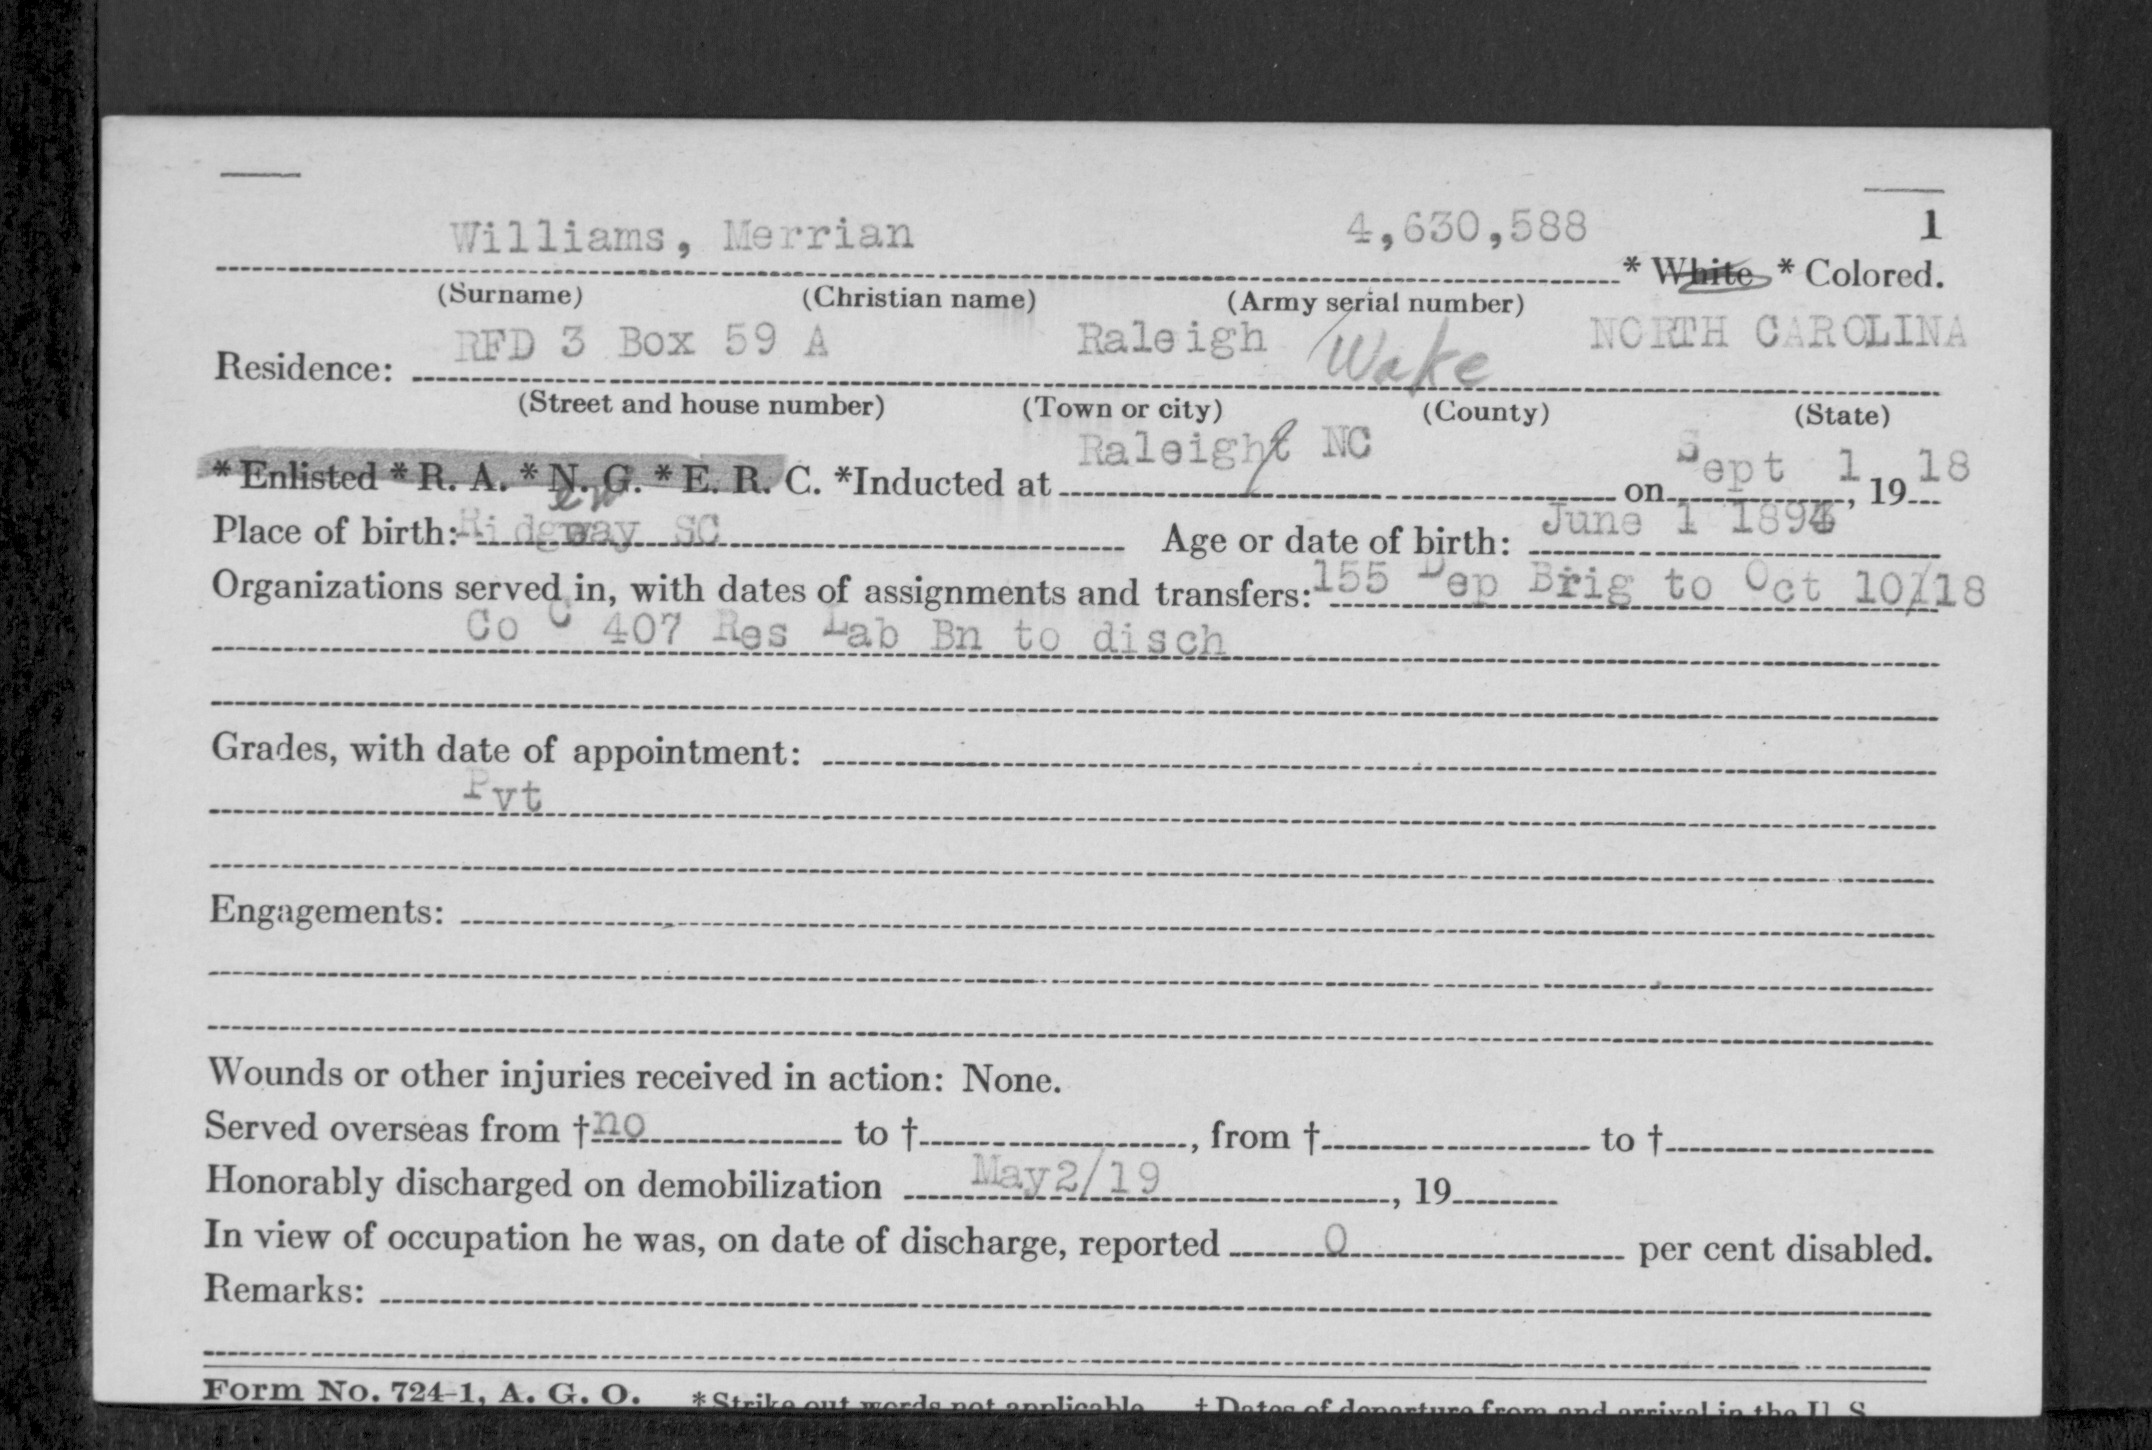 Williams, Merrian 4,630,588 1
* White * Colored.
(Surname) (Christian name) (Army serial number)
RFD 3 Box 59 A Raleigh Wake NORTH CAROLINA
Residence:
(Street and house number) (Town or city) (County) (State)
* Enlisted * R. A. * N. G. * E. R. C. *Inducted at Raleigh NC on Sept 1, 1918
en
Place of birth: Ridgeway SC Age or date of birth: June 1 1894
Organizations served in, with dates of assignments and transfers: 155 Dep Brig to Oct 10/18
Co C 407 Res Lab Bn to disch
Grades, with date of appointment:
Pvt
Engagements:
Wounds or other injuries received in action: None.
Served overseas from † no to †, from † to †
Honorably discharged on demobilization May 2/19, 19
In view of occupation he was, on date of discharge, reported 0 per cent disabled.
Remarks:
Form No. 724-1, A. G. O. *Strike out words not applicable † Dates of departure from and arrival in the U. S.